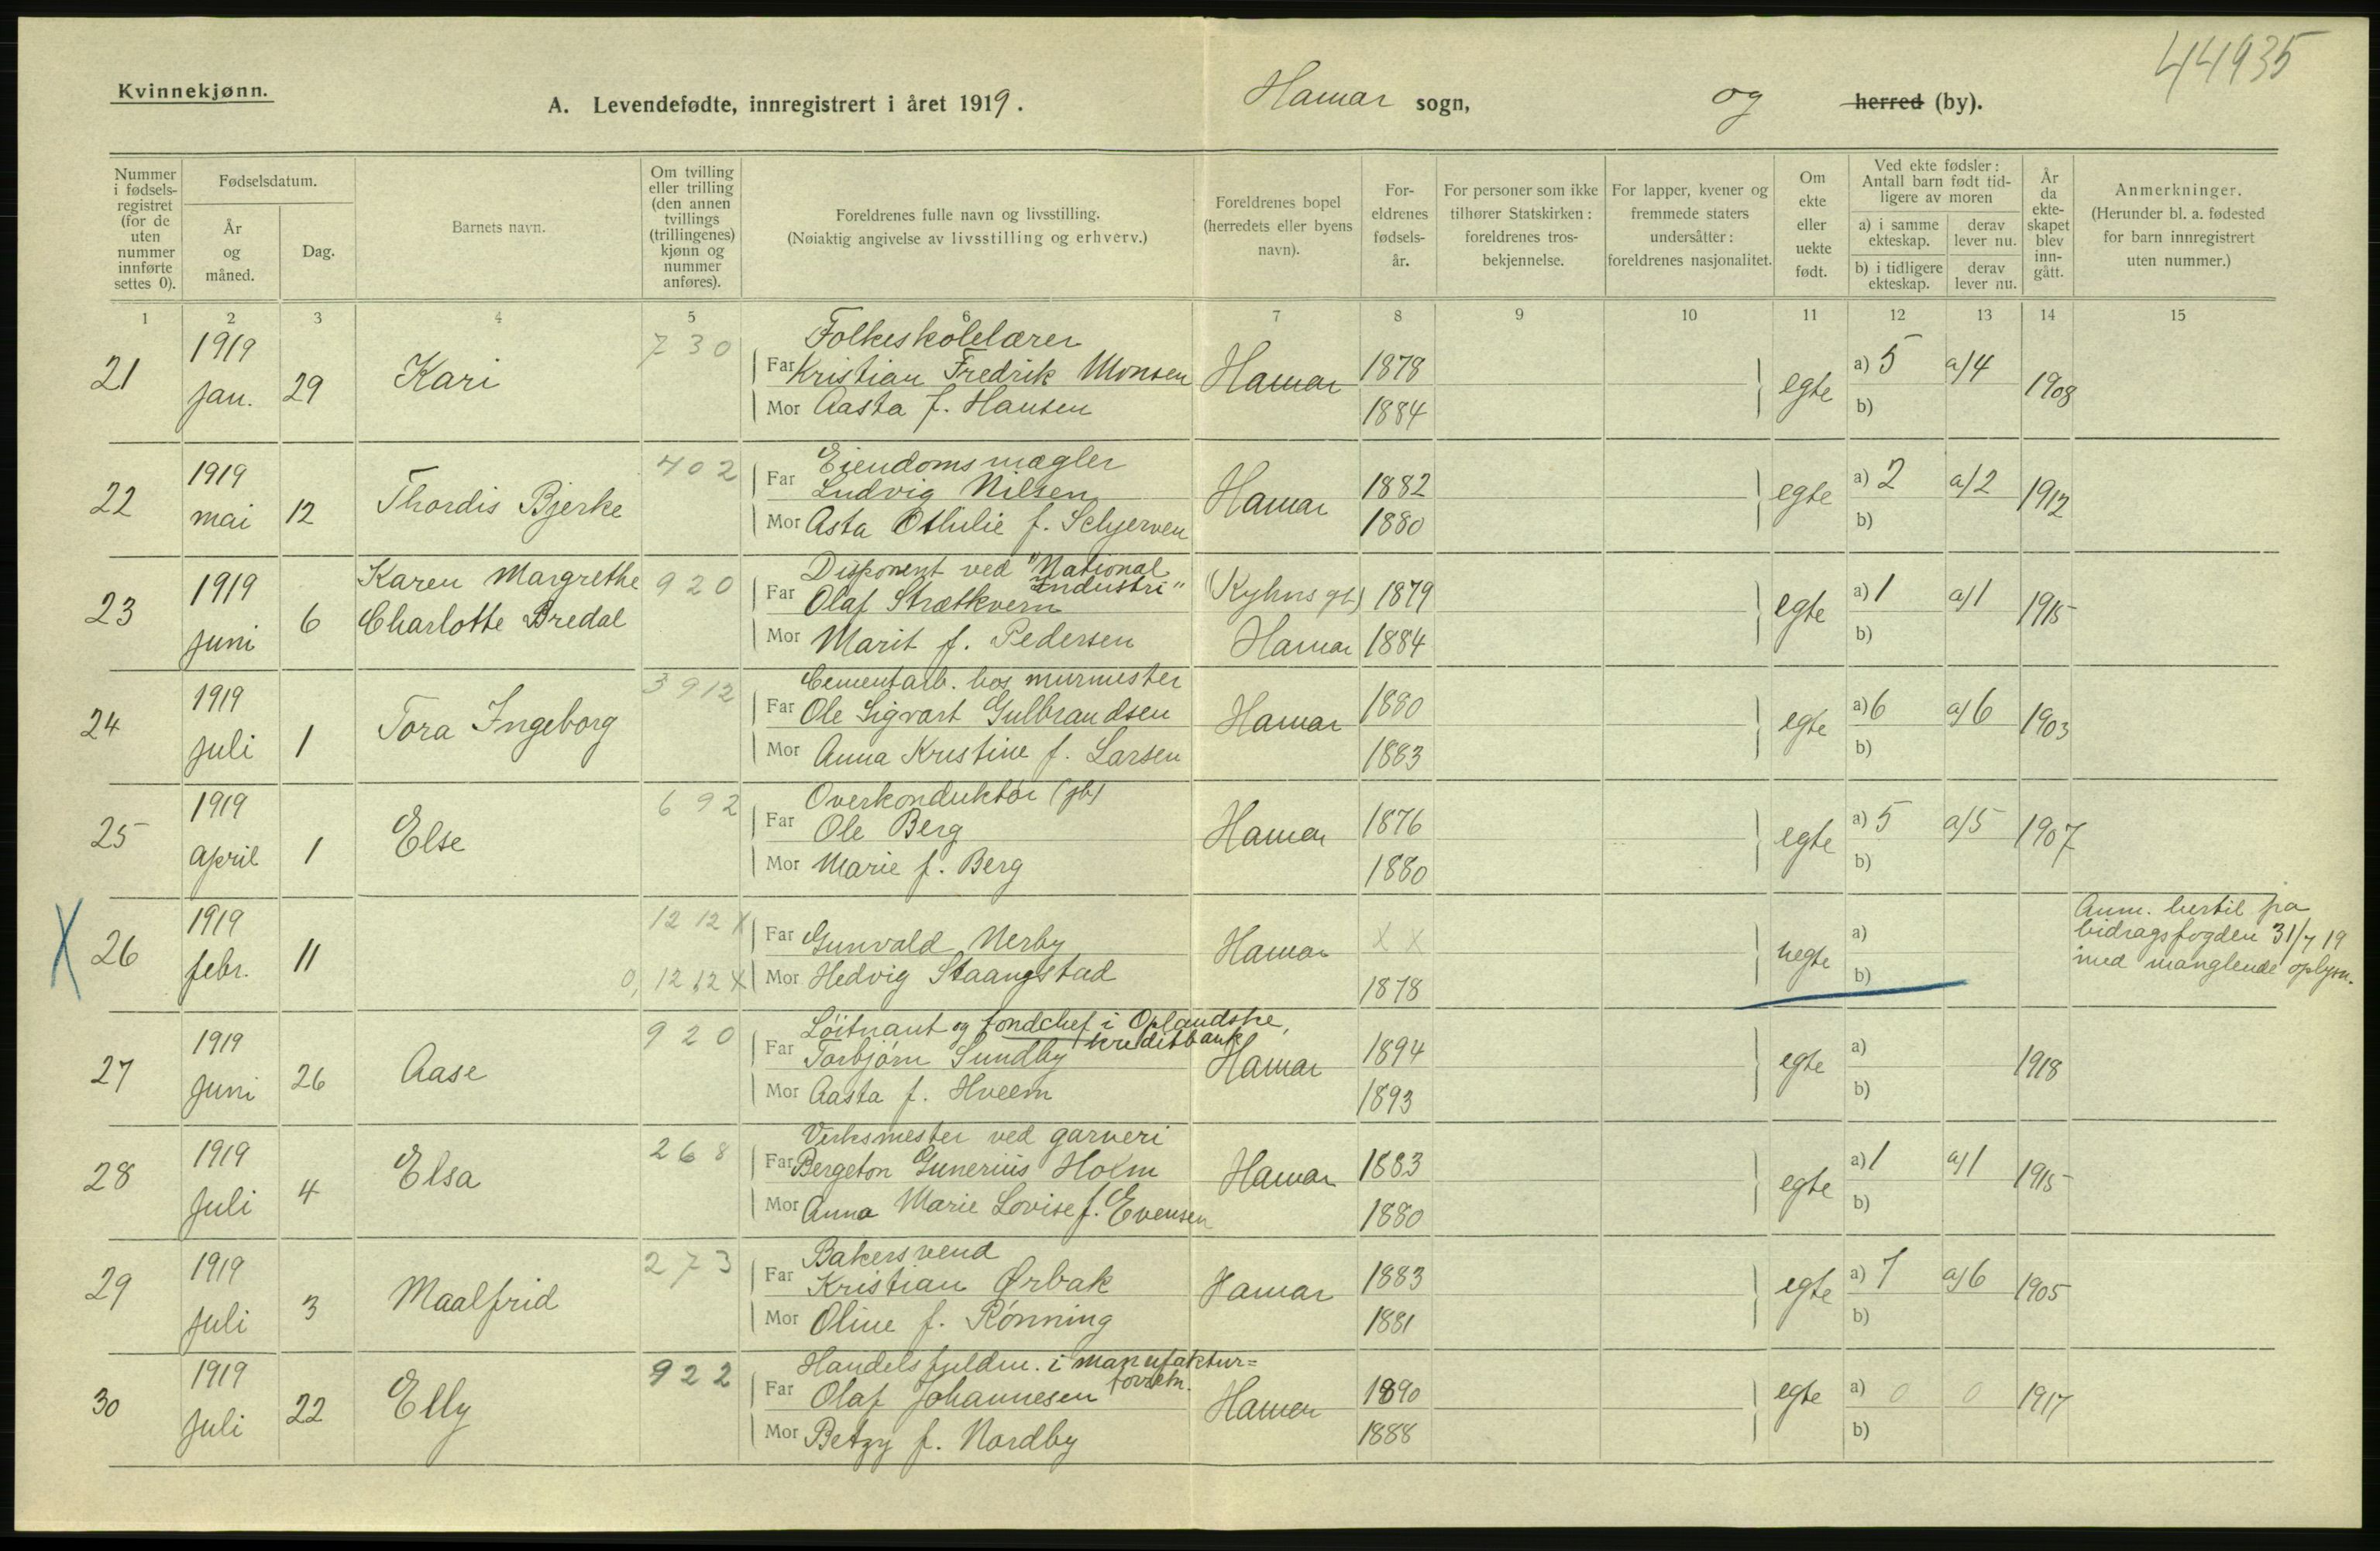 44935
Kvinnekjønn.
A. Levendefødte, innregistrert i året 1919. Hamar sogn, og herred (by).
Nummer i fødsels-registret (for de uten nummer innførte settes 0). Fødselsdatum. År og måned. Dag. Barnets navn. Om tvilling eller trilling (den annen tvillings (trillingenes) kjønn og nummer anføres). Foreldrenes fulle navn og livsstilling. (Nøiaktig angivelse av livsstilling og erhverv.) Foreldrenes bopel (herredets eller byens navn). For-eldrenes fødsels-år. For personer som ikke tilhører Statskirken: foreldrenes tros-bekjennelse. For lapper, kvener og fremmede staters undersåtter: foreldrenes nasjonalitet. Om ekte eller uekte født. Ved ekte fødsler: Antall barn født tid-ligere av moren a) i samme ekteskap. derav lever nu. b) i tidligere ekteskap. derav lever nu. År da ekte-skapet blev inn-gått. Anmerkninger. (Herunder bl. a. fødested for barn innregistrert uten nummer.)
1 2 3 4 5 6 7 8 9 10 11 12 13 14 15
1919 730 Folkeskolelærer
21 Jan. 29 Kari Far Kristian Fredrik Monsen Hamar 1878 egte a) 5 a/4 1908
Mor Aasta f. Hansen 1884 b)
1919 402 Eiendomsmægler
22 mai 12 Thordis Bjerke Far Ludvig Nilsen Hamar 1882 egte a) 2 a/2 1912
Mor Asta Othilie f. Schjerven 1880 b)
Karen Margrethe 920 Disponent ved "National Industri"
23 1919 juni 6 Charlotte Bredal Far Olaf Strætkvern (Kyhns gt) 1879 egte a) 1 a/1 1915
Mor Marit f. Pedersen Hamar 1884 b)
1919 3912 Cementarb. hos murmester
24 juli 1 Tora Ingeborg Far Ole Sigvart Gulbrandsen Hamar 1880 egte a) 6 a/6 1903
Mor Anna Kristine f. Larsen 1883 b)
1919 692 Overkonduktør (jb)
25 april 1 Else Far Ole Berg Hamar 1876 egte a) 5 a/5 1907
Mor Marie f. Berg 1880 b)
X 26 1919 febr. 11 12 12 X Far Gunvald Nerby Hamar X X uegte a) Anm. hertil fra bidragsfogden 31/7 19 med manglende oplysn.
0, 12, 12 X Mor Hedvig Staangstad 1878 b)
1919 920 Løitnant og fondchef i Oplandske kreditbank
27 Juni 26 Aase Far Torbjørn Sundby Hamar 1894 egte a) 1918
Mor Aasta f. Hveem 1893 b)
1919 268 Verksmester ved garveri
28 Juli 4 Elsa Far Bergeton Gunerius Holm Hamar 1883 egte a) 1 a/1 1915
Mor Anna Marie Lovise f. Evensen 1880 b)
1919 273 Bakersvend
29 Juli 3 Maalfrid Far Kristian Ørbak Hamar 1883 egte a) 7 a/6 1905
Mor Oline f. Rønning 1881 b)
1919 922 Handelsfuldm. i manufaktur=forretn.
30 Juli 22 Elly Far Olaf Johannesen Hamar 1890 egte a) 0 0 1917
Mor Betzy f. Nordby 1888 b)